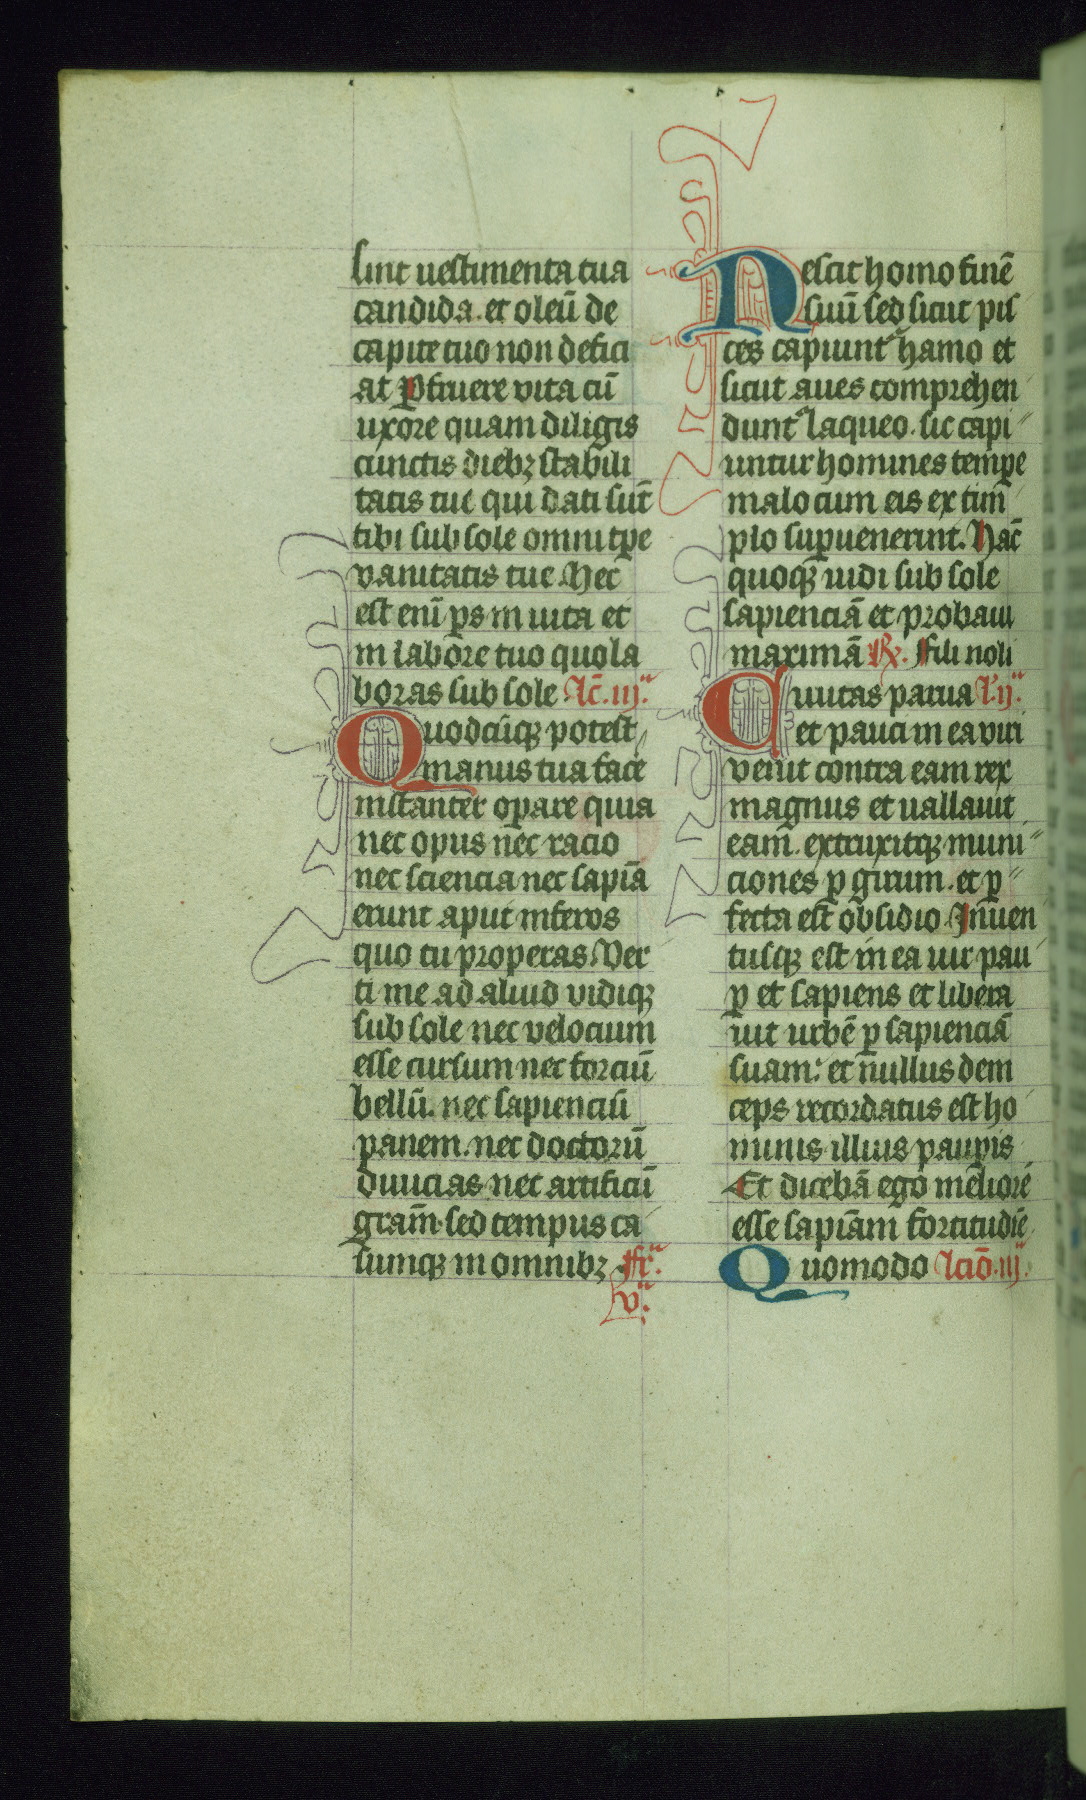 sint uestimenta tua
candida. et oleū de
capite tuo non defici
at Perfruere vita cū
uxore quam diligis
cunctis diebꝫ stabili
tatis tue qui dati sūt
tibi sub sole omni tꝑe
vanitatis tue Hec
est enī ꝑs in uita et
in labore tuo quo la
boras sub sole Lc̄. iij.
Quodcūqꝫ potest
manus tua face
instanter oꝑare quia
nec opus nec racio
nec sciencia nec sapīa
erunt aput inferos
quo tu properas Ver
ti me ad aliud vidiqꝫ
sub sole nec velocium
esse cursum nec forciū
bellū. nec sapienciū
panem. nec doctorū
diuicias nec artificū
gram̄. sed tempus ca
sumqꝫ in omnibꝫ fr̄.
v.
Nescit homo finē
suū sed sicut pis
ces capiunt hamo et
sicut aues comprehen
dunt laqueo. sic capi
untur homines temꝑe
malo cum eis extim
plo suꝑuenerint. Hāc
quoqꝫ uidi sub sole
sapienciā et probaui
maximā ℟. Fili noli
Ciuitas parua L. ij.
et pauci in ea viri
venit contra eam rex
magnus et uallauit
eam. extruxitqꝫ muni
ciones ꝑ girum. et ꝑ
fecta est obsidio Inuen
tusqꝫ est in ea uir pau
ꝑ et sapiens et libera
uit urbē ꝑ sapienciā
suam. et nullus dein
ceps recordatus est ho
minis illius pauꝑis
Et dicebā ego meliorē
esse sapīam fortitudīe
Quomodo Lcīo. iij.